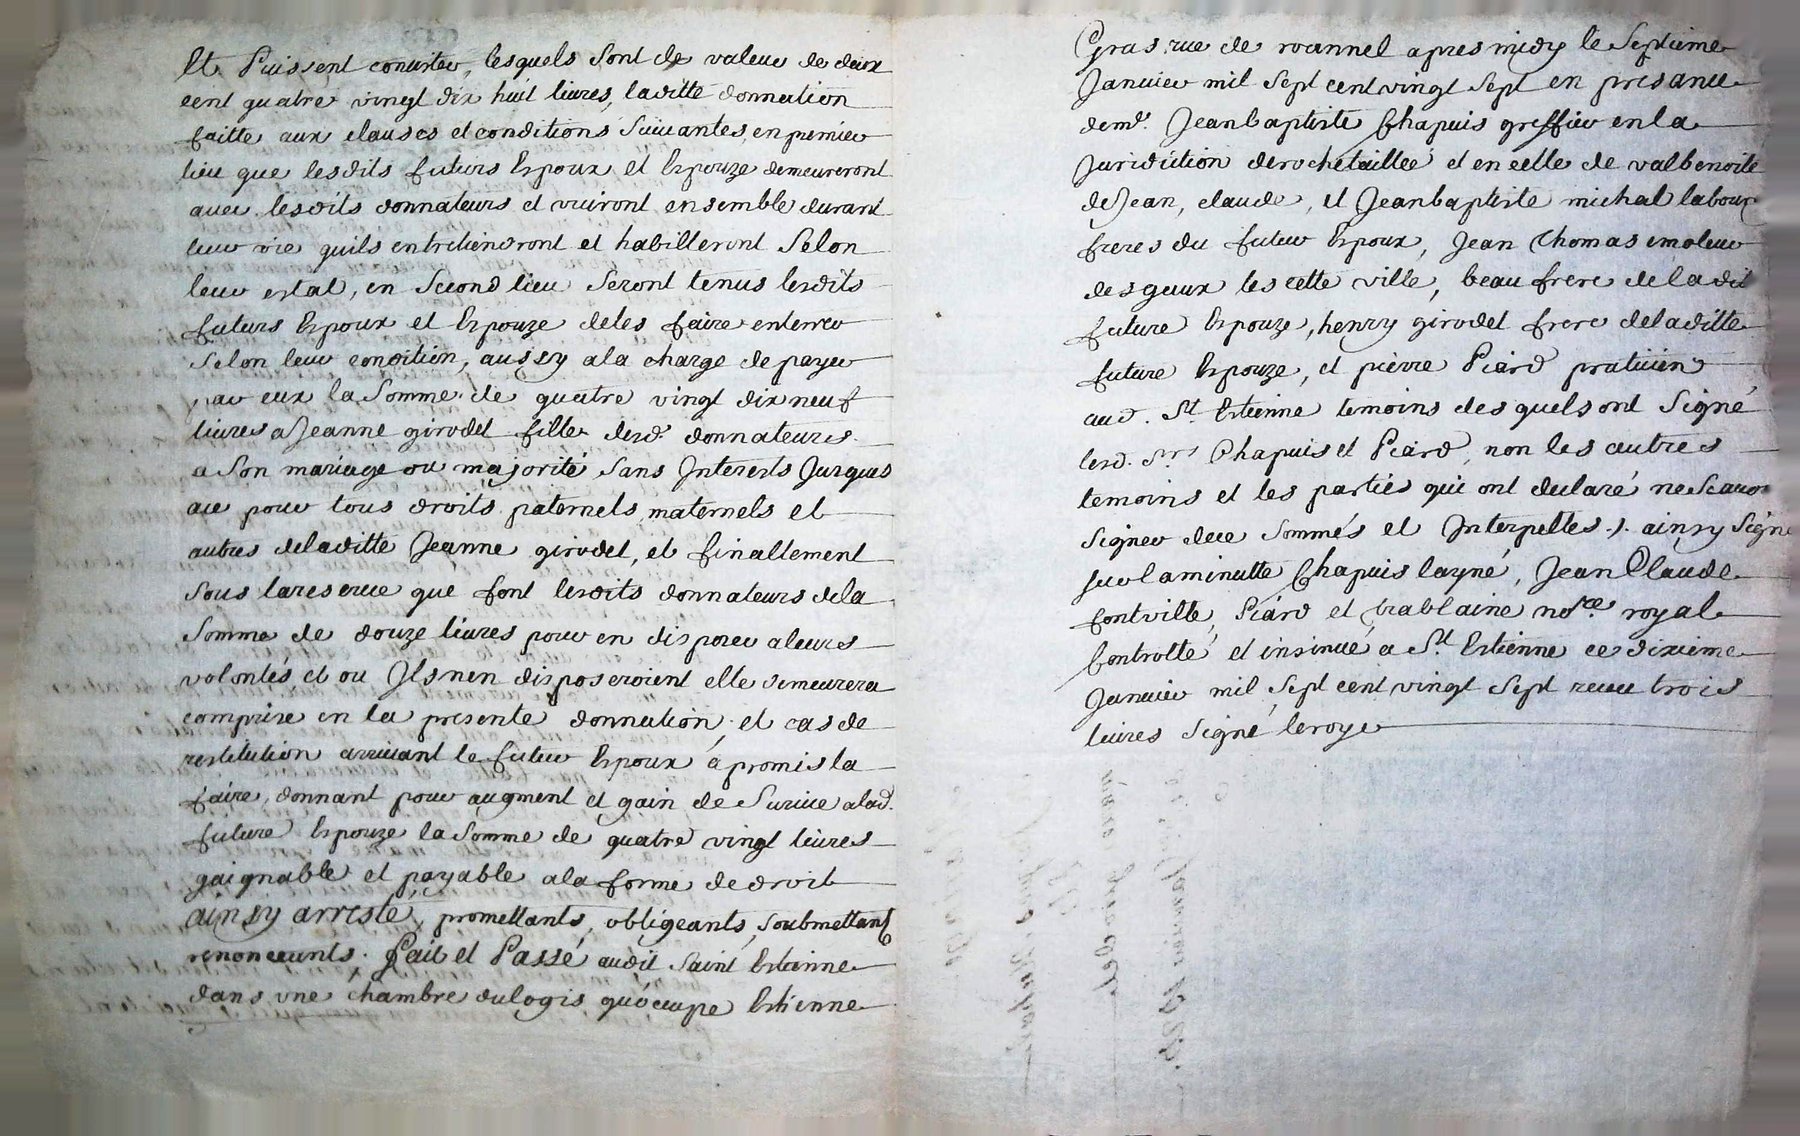 Et Puissent consister, lesquels sont de valeur de deux
cent quatre vingt dix huit livres, laditte donnation
faitte aux clauses et conditions suivantes, en premier
lieu que lesdits futurs Espoux et Espouze demeureront
avec lesdits donnateurs et vivront ensemble durant
leur vie quils entretiendront et habilleront selon
leur estat, en second lieu seront tenus lesdits
futurs Espoux et Espouze deles faire enterrer
selon leur condition, aussy ala charge de payer
par eux la somme de quatre vingt dix neuf
livres a Jeanne girodet fille desd. donnateurs.
a son mariage ou majorité sans Interests Jusques
ace pour tous droits paternels, maternels et
autres deladitte Jeanne girodet, et finallement
sous lareserve que font lesdits donnateurs dela
somme de douze livres pour en disposer aleurs
volontés et ou Ils nen disposeroient elle demeurera
comprise en la presente donnation, et cas de
restitution arrivant le futur Espoux a promis la
faire, donnant pour augment et gain de survie alad.
future Espouze la somme de quatre vingt livres
gaignable et payable ala forme de droit
ainsy arresté, promettants, obligeants, soubmettants
renonceants. Fait et Passé audit Saint Estienne
dans une chambre dulogis quóccupe Estienne
Gras rue de roannel apres midy le Septieme
Janvier mil sept cent vingt sept en presance
demr. Jeanbaptiste Chapuis greffier en la
Juridiction derochetaillée et en celle de valbenoite
de Jean, claude, et Jeanbaptiste michal labour
freres du futur Espoux, Jean Thomas emoleur
desgaux les cette ville, beau frere de ladit
future Espouze, henry girodet frere deladitte
future Espouze, et pierre Piard praticien
aud. St. Estienne temoins desquels ont signé
lesd. Srs Chapuis et Piard, non les autres
temoins et les parties qui ont declaré ne scavoir
signer dece sommés et Interpellés .). ainsy signé
sur la minutte Chapuis layné, Jean Claude
fontvielle, Piard et trablaine nore royal
Controllé et insinué a St. Estienne ce dixieme
Janvier mil sept cent vingt sept receu trois
livres signé leroye